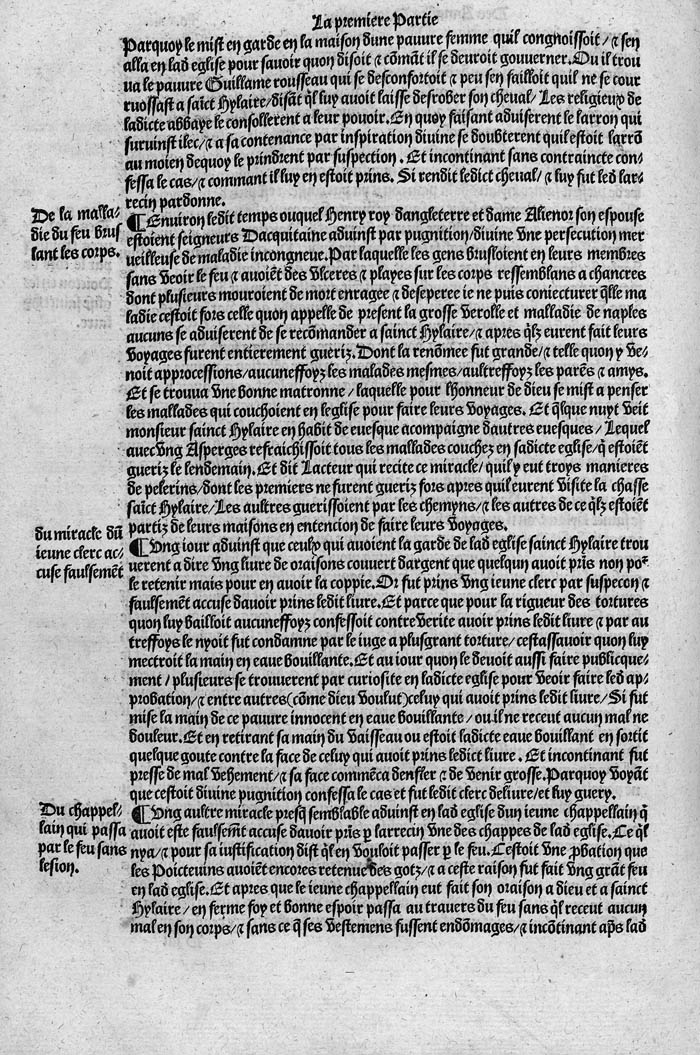 La premiere Partie
Parquoy le mist en garde en la maison dune pauure femme quil congnoissoit / ⁊ sen
alla en lad eglise pour sauoir quon disoit ⁊ cōmāt il se deuroit gouuerner. Ou il trou
ua le pauure Guillame rousseau qui se desconfortoit ⁊ peu sen failloit quil ne se cour
ruossast a saīct Hylaire / disāt q̄l luy auoit laisse desrober son cheual / Les religieux de
ladicte abbaye le consollerent a leur pouoir. En quoy faisant aduiserent le larron qui
suruinst ilec / ⁊ a sa contenance par inspiration diuine se doubterent quil estoit larrō
au moien dequoy le prindrent par suspection. Et incontinant sans contraincte con⸗
fessa le cas / ⁊ commant il luy en estoit prins. Si rendit ledict cheual / ⁊ luy fut led lar⸗
recin pardonne.
De la malla⸗
die du feu brus
lant les corps.
¶ Enuiron ledit temps ouquel Henry roy dangleterre et dame Alienor son espouse
estoient seigneurs Dacquitaine aduinst par pugnition / diuine vne persecution mer
ueilleuse de maladie incongneue. Par laquelle les gens brusloient en leurs membres
sans veoir le feu ⁊ auoiēt des vlceres ⁊ playes sur les corps ressemblans a chancres
dont plusieurs mouroient de mort enragee ⁊ deseperee ie ne puis coniecturer q̄lle ma
ladie cestoit fors celle quon appelle de present la grosse verolle et malladie de naples
aucuns se aduiserent de se recōmander a sainct Hylaire / ⁊ apres q̄lz eurent fait leurs
voyages furent entierement gueriz. Dont la renōmee fut grande / ⁊ telle quon y ve⸗
noit approcessions / aucuneffoyz les malades mesmes / aultreffoyz les parēs ⁊ amys.
Et se trouua vne bonne matronne / laquelle pour lhonneur de dieu se mist a penser
les mallades qui couchoient en leglise pour faire leurs voyages. Et q̄lque nuyt veit
monsieur sainct Hylaire en habit de euesque acompaigne dautres euesques / Lequel
auec vng Asperges refraichissoit tous les mallades couchez en sadicte eglise / q̄ estoiēt
gueriz le lendemain. Et dit Lacteur qui recite ce miracle / quil y eut troys manieres
de pelerins / dont les premiers ne furent gueriz fors apres quil eurent visite la chasse
saīct Hylaire / Les aultres guerissoient par les chemyns / ⁊ les autres de ce q̄lz estoiēt
partiz de leurs maisons en entencion de faire leurs voyages.
du miracle dū
ieune clerc ac⸗
cuse faulsemēt
¶ Vng iour aduinst que ceulx qui auoient la garde de lad eglise sainct Hylaire trou
uerent a dire vng liure de oraisons couuert dargent que quelqun auoit prīs non po²
le retenir mais pour en auoir la coppie. Or fut prins vng ieune clerc par suspecon ⁊
faulsemēt accuse dauoir prins ledit liure. Et parce que pour la rigueur des tortures
quon luy bailloit aucuneffoyz confessoit contre verite auoir prins ledit liure ⁊ par au
treffoys le nyoit fut condamne par le iuge a plusgrant torture / cestassauoir quon luy
mectroit la main en eaue bouillante. Et au iour quon le deuoit aussi faire publicque⸗
ment / plusieurs se trouuerent par curiosite en ladicte eglise pour veoir faire led ap⸗
probation / ⁊ entre autres (cōme dieu voulut) celuy qui auoit prins ledit liure / Si fut
mise la main de ce pauure innocent en eaue bouillante / ou il ne receut aucun mal ne
douleur. Et en retirant sa main du vaisseau ou estoit ladicte eaue bouillant en sortit
quelque goute contre la face de celuy qui auoit prins ledict liure. Et incontinant fut
presse de mal vehement / ⁊ sa face commēca denfler ⁊ de venir grosse. Parquoy voyāt
que cestoit diuine pugnition confessa le cas et fut ledit clerc deliure / et luy guery.
Du chappel⸗
lain qui passa
par le feu sans
lesion.
¶ Vng aultre miracle presq̄ semblable aduinst en lad eglise dun ieune chappellain q̄
auoit este faulsemēt accuse dauoir prīs ꝑ larrecin vne des chappes de lad eglise. Ce q̄l
nya / ⁊ pour sa iustification dist q̄l en vouloit passer ꝑ le feu. Cestoit vne ꝓbation que
les Poicteuins auoiēt encores retenue des gotz / ⁊ a ceste raison fut fait vng grāt feu
en lad eglise. Et apres que le ieune chappellain eut fait son oraison a dieu et a sainct
Hylaire / en ferme foy et bonne espoir passa au trauers du feu sans q̄l receut aucun
mal en son corps / ⁊ sans ce q̄ ses vestemens fussent endōmages / ⁊ incōtinant aps̄ lad